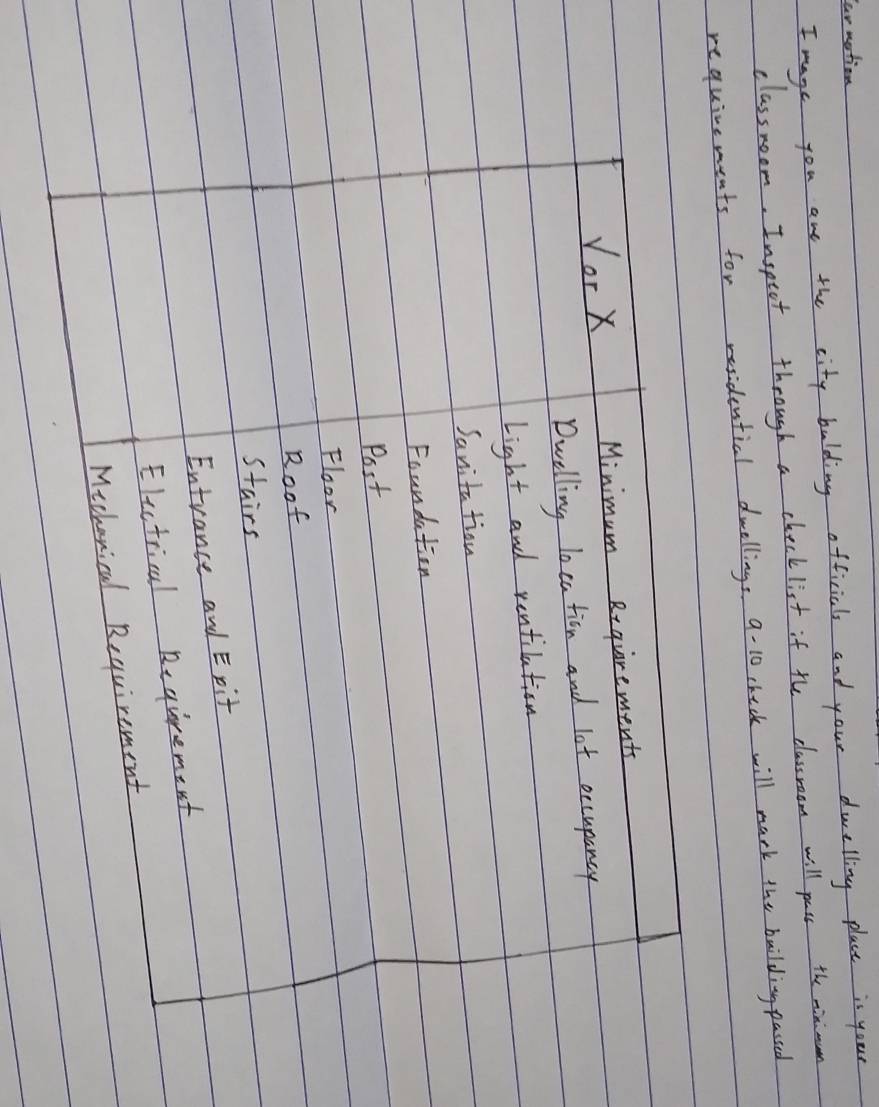 Image you are the city bulding officials and your dwelling place is your
classroom. Inspect through a checklist if the classroom will pass the minimum
requirements for residential dwellings. 9-10 check will mark the building passed
√ or X Minimum Requirements
Dwelling location and lot occupancy
Light and ventilation
Sanitation
Foundation
Post
Floor
Roof
Stairs
Entrance and Exit
Electrical Requirement
Mechanical Requirement